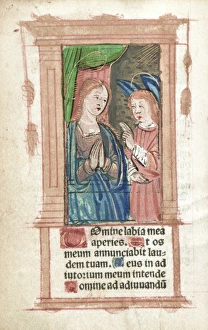 Domine labia mea
aperies. Et os
meum annunciabit lau
dem tuam. Deus in ad
iutorium meum intende
Domine ad adiuuandū